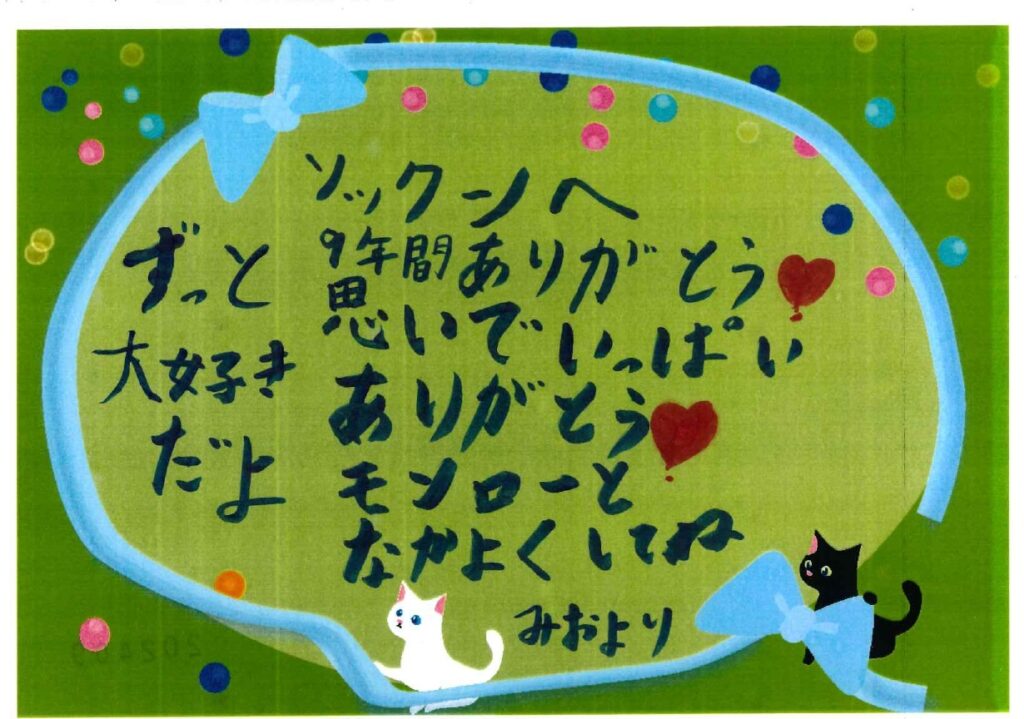 ソックーンへ
9年間ありがとう
思いでいっぱい
ありがとう
モンローと
なかよくしてね
みおより
ずっと
大好き
だよ